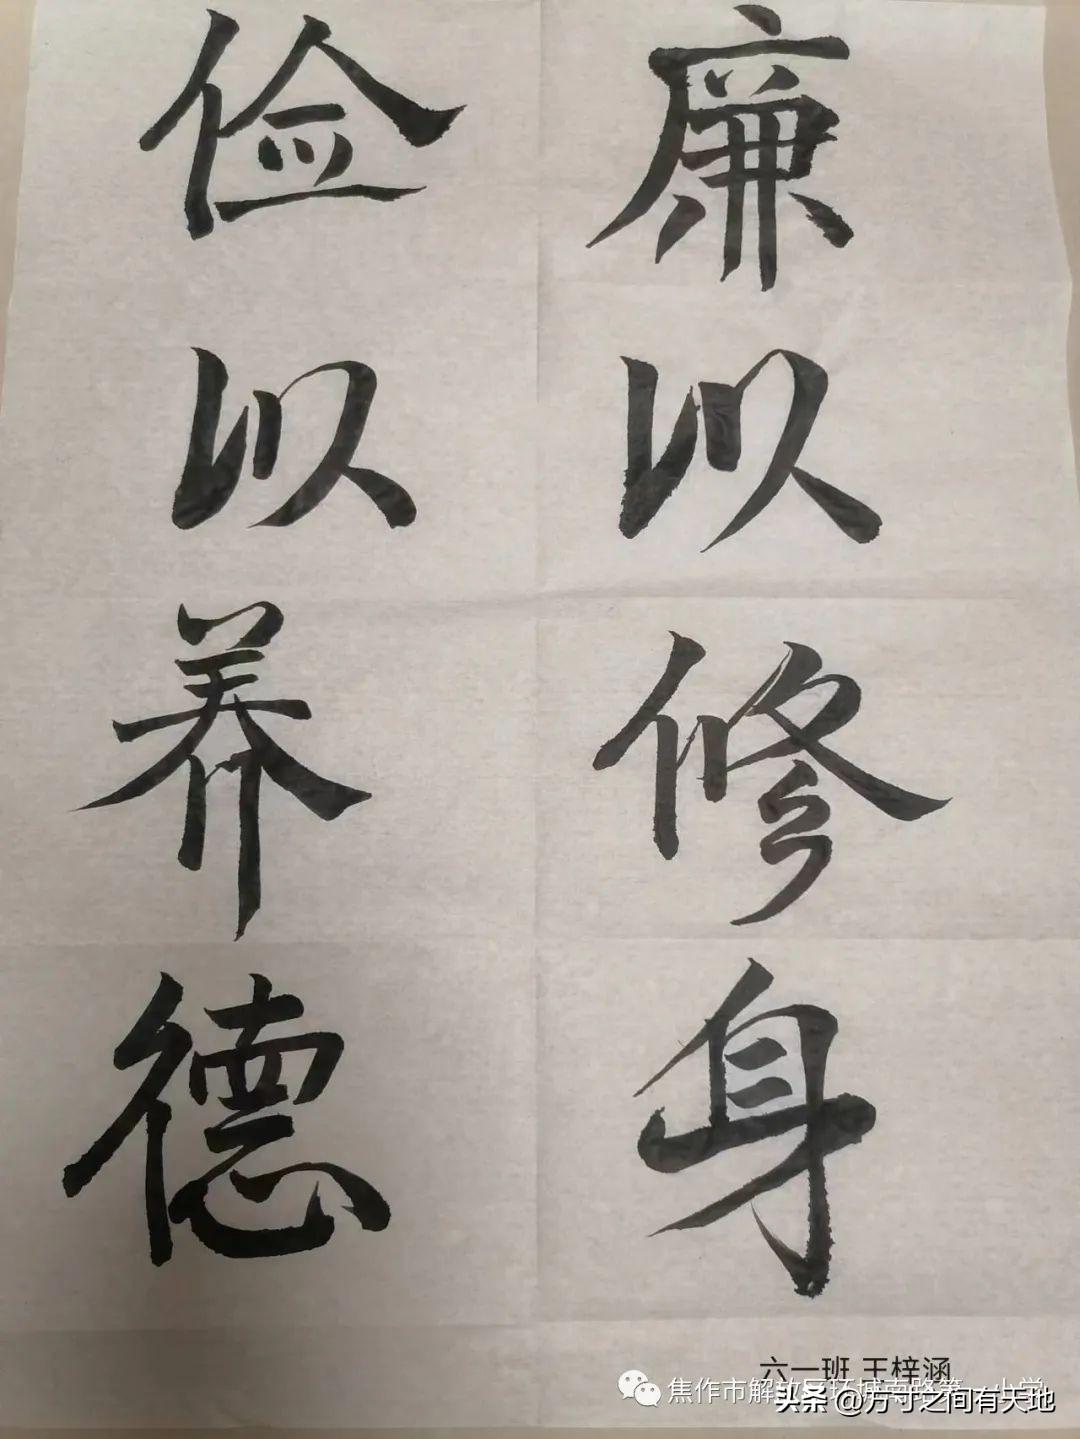 廉以修身
俭以养德
六一班 王梓涵
焦作市解放区环城南路第一小学
头条 @方寸之间有天地